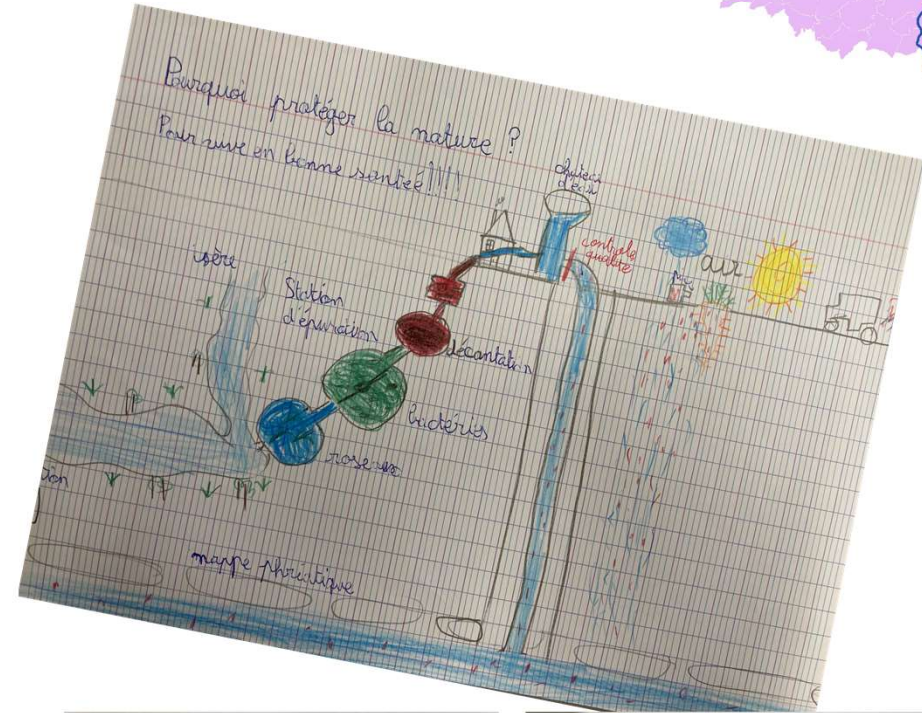 Pourquoi protéger la nature ?
Pour vivre en bonne santée!!!!
château
d'eau
contrôle
qualité
air
isère
Station
d'épuration
décantation
bactéries
roseaux
nappe phréatique